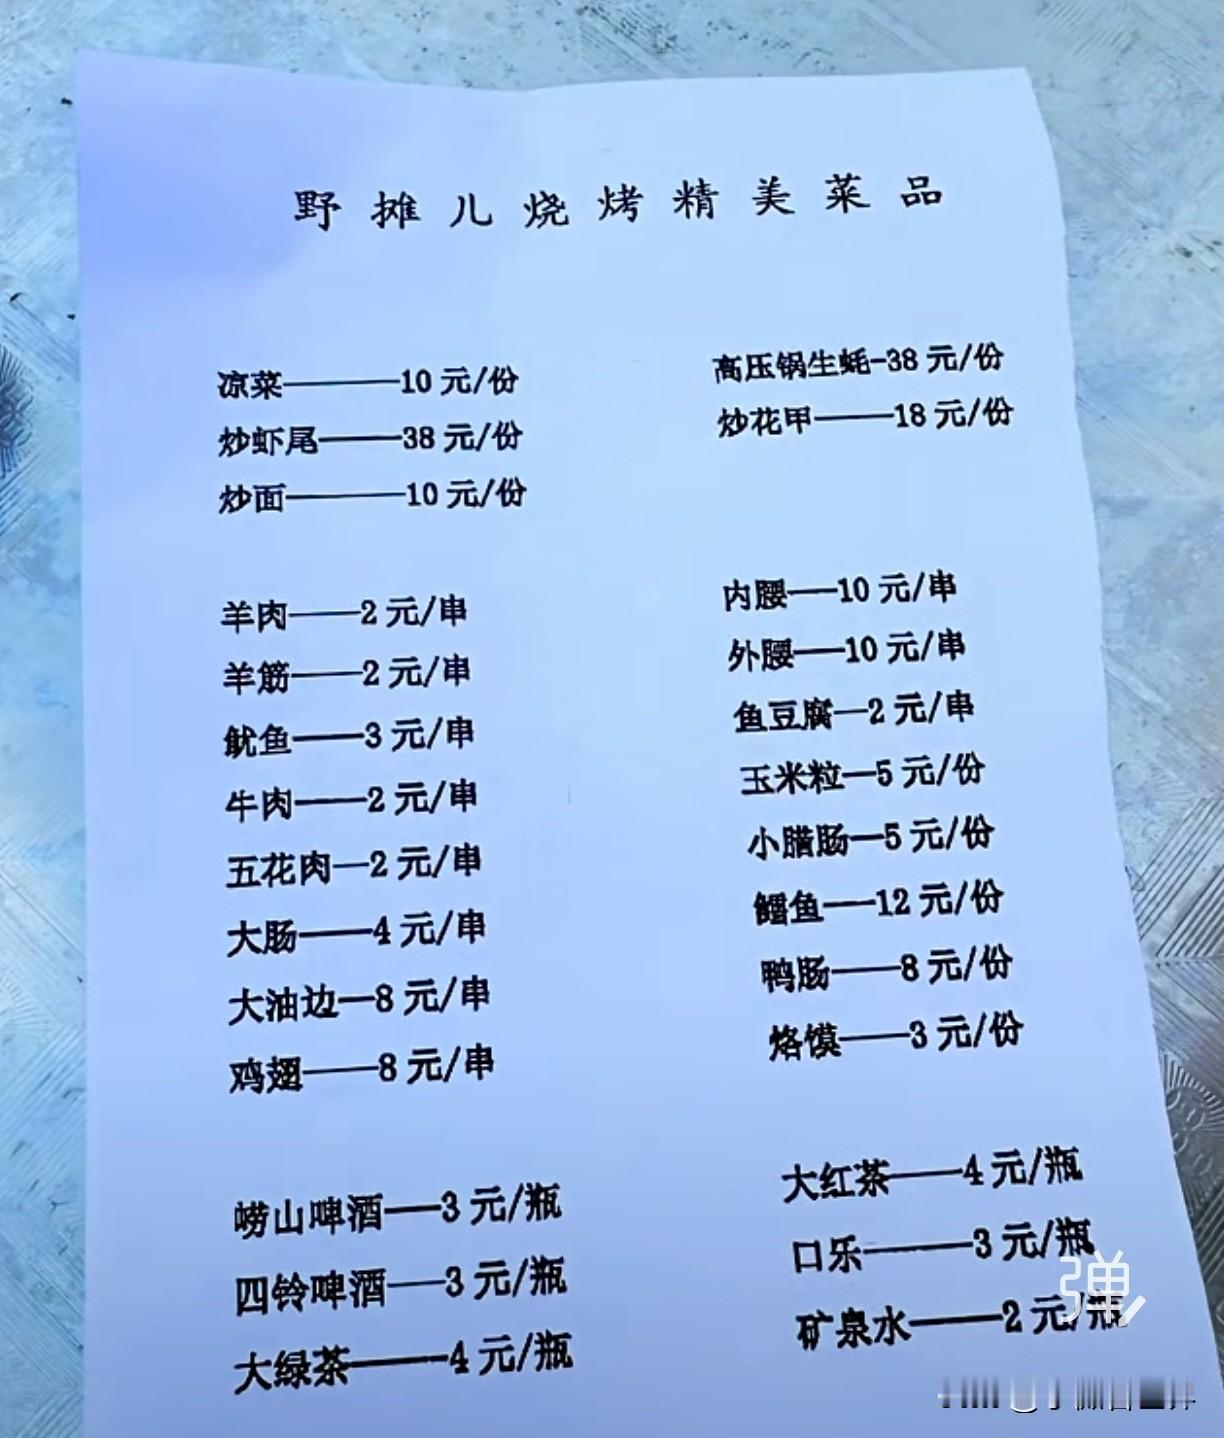 野摊儿烧烤精美菜品
凉菜————10元/份
炒虾尾———38元/份
炒面————10元/份
高压锅生蚝-38元/份
炒花甲———18元/份
羊肉——2元/串
羊筋——2元/串
鱿鱼——3元/串
牛肉——2元/串
五花肉—2元/串
大肠——4元/串
大油边—8元/串
鸡翅——8元/串
内腰——10元/串
外腰——10元/串
鱼豆腐—2元/串
玉米粒—5元/份
小腊肠—5元/份
鲳鱼——12元/份
鸭肠——8元/份
烙馍——3元/份
崂山啤酒——3元/瓶
四铃啤酒——3元/瓶
大绿茶———4元/瓶
大红茶———4元/瓶
口乐————3元/瓶
矿泉水———2元/瓶
弹